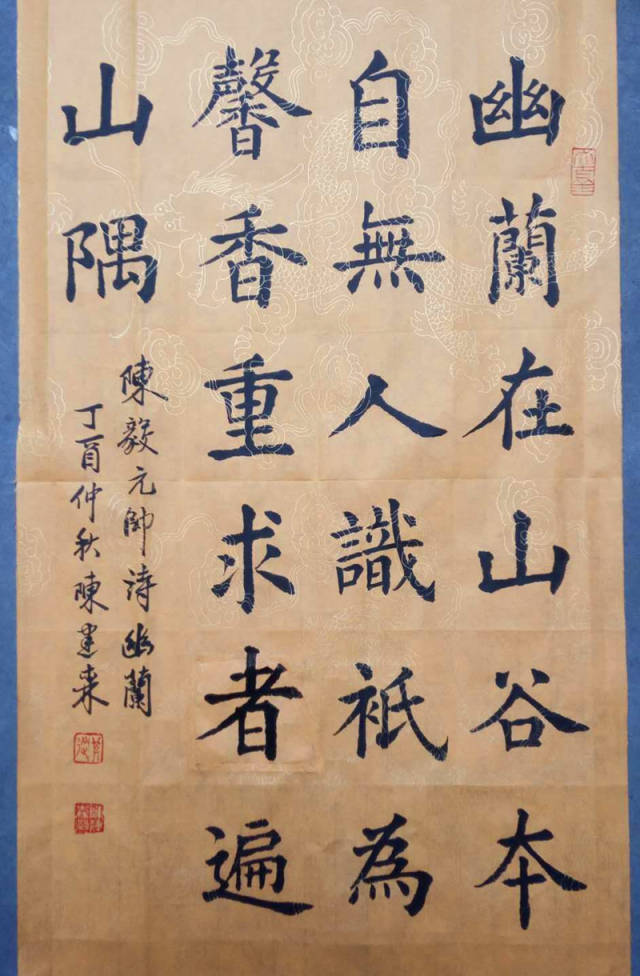 幽蘭在山谷本
自無人識祇為
馨香重求者遍
山隅
陳毅元帥詩幽蘭
丁酉仲秋陳建森